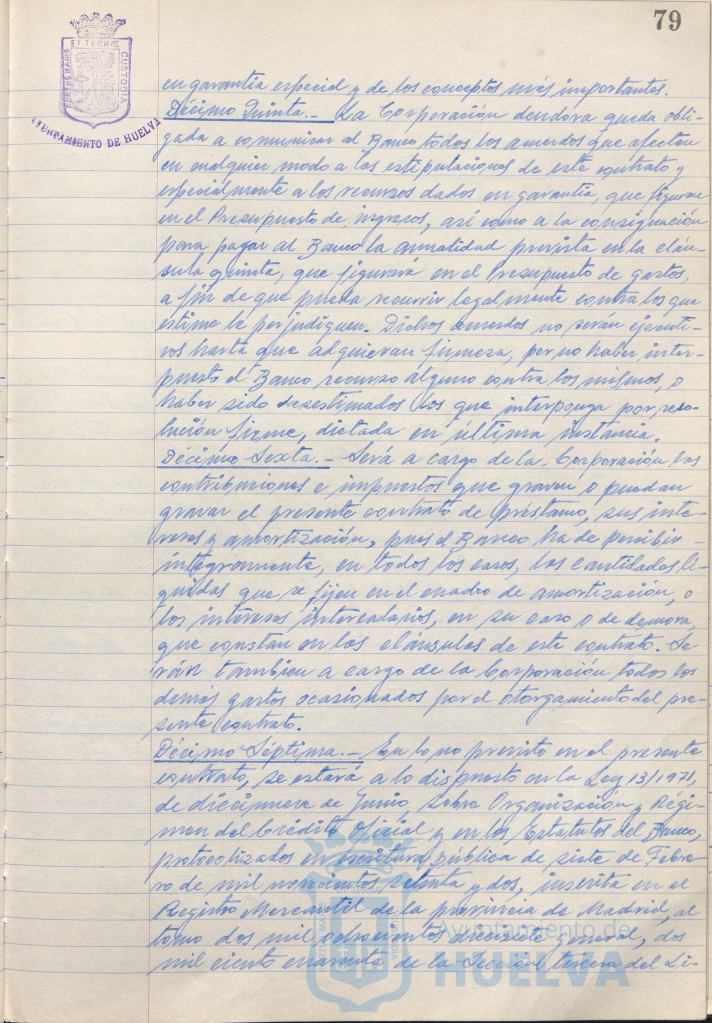 79
PORTUS MARIS ET TERRAE CUSTODIA
AYUNTAMIENTO DE HUELVA
en garantia especial y de los conceptos más importantes.
Décimo Quinta.- La Corporación deudora queda obli-
gada a comunicar al Banco todos los acuerdos que afecten
en cualquier modo a las estipulaciones de este contrato y
especialmente a los recursos dados en garantia, que figuran
en el Presupuesto de ingresos, asi como a la consignación
para pagar al Banco la anualidad prevista en la cláu-
sula quinta, que figurará en el Presupuesto de gastos,
a fin de que pueda recurrir legalmente contra los que
estime le perjudiquen. Dichos acuerdos no serán ejecuti-
vos hasta que adquieran firmeza, por no haber inter-
puesto el Banco recurso alguno contra los mismos, o
haber sido desestimados los que interponga por reso-
lución firme, dictada en última instancia.
Décimo Sexta.- Será a cargo de la Corporación las
contribuciones e impuestos que graven o puedan
gravar el presente contrato de préstamo, sus inte-
reses y amortización, pues el Banco ha de percibir
integramente, en todos los casos, las cantidades lí-
quidas que se fijen en el cuadro de amortización, o
los intereses intercalarios, en su caso o de demora,
que constan en las cláusulas de este contrato. Se-
rán tambien a cargo de la Corporación todos los
demás gastos ocasionados por el otorgamiento del pre-
sente contrato.
Décimo Séptima.- En lo no previsto en el presente
contrato, se estará a lo dispuesto en la Ley 13/1971,
de diecinueve de Junio, sobre Organización y Régi-
men del Crédito Oficial y en los Estatutos del Banco,
protocolizados en escritura pública de siete de Febre-
ro de mil novecientos setenta y dos, inscrita en el
Registro Mercantil de la provincia de Madrid, al
tomo dos mil ochocientos diecisiete general, dos
mil ciento cuarenta de la Sección tercera del Li-
Ayuntamiento de
HUELVA